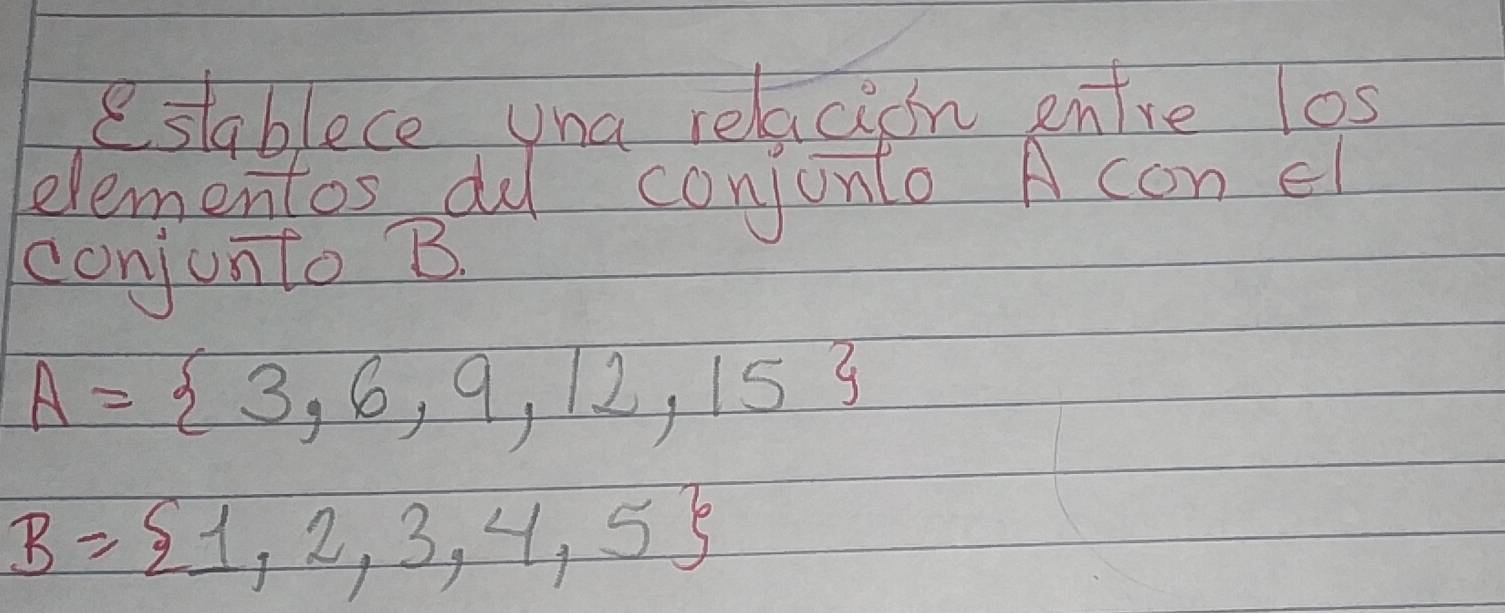 Establece una relación entre los
elementos del conjunto A con el
conjunto B.
A = { 3, 6, 9, 12, 15 }
B = { 1, 2, 3, 4, 5 }